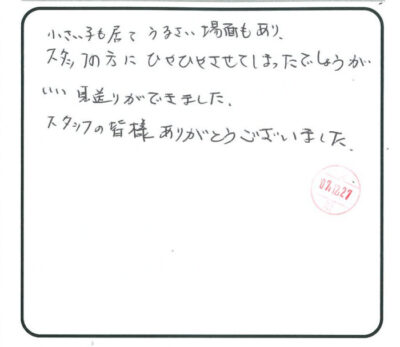 小さい子も居て うるさい場面もあり、
スタッフの方に ひやひやさせてしまったでしょうが
いい 見送りができました。
スタッフの皆様 ありがとうございました。